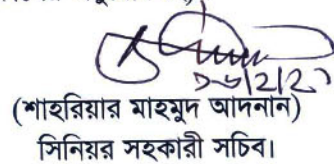 ১৬/২/২৩
(শাহরিয়ার মাহমুদ আদনান)
সিনিয়র সহকারী সচিব।